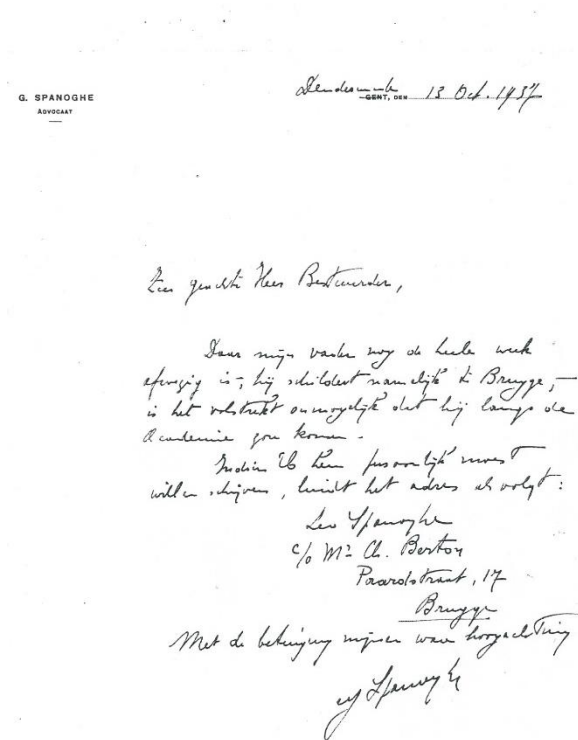 G. SPANOGHE
ADVOCAAT
Dendermonde GENT, DEN 13 Oct. 1937
Zeer geachte Heer Bestuurder,
Daar mijn vader nog de heele week
afwezig is, - hij schildert namelijk te Brugge, -
is het volstrekt onmogelijk dat hij langs de
Academie zou komen.
Indien U hem persoonlijk moest
willen schrijven, luidt het adres als volgt:
Leo Spanoghe
c/o Mr Ch. Berton
Paardstraat, 17
Brugge
Met de betuiging mijner ware hoogachting
Spanoghe